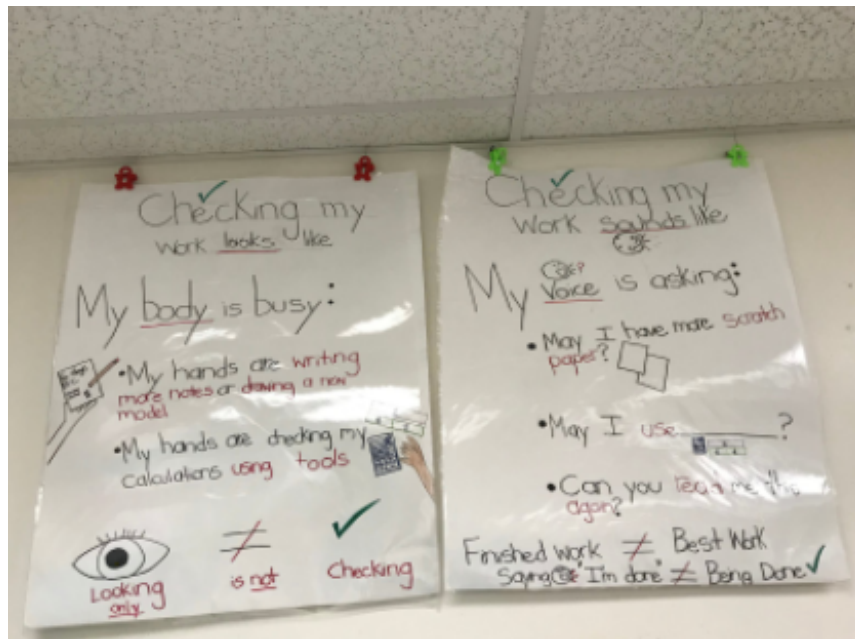 Checking my
work looks like
My body is busy:
•My hands are writing
more notes or drawing a new
model
•My hands are checking my
calculations using tools
Looking
only
≠
is not
Checking
Checking my
work sounds like
My voice is asking:
•May I have more scratch
paper?
•May I use________?
•Can you me this
again?
Finished work ≠ Best Work
Saying "I'm done" ≠ Being Done